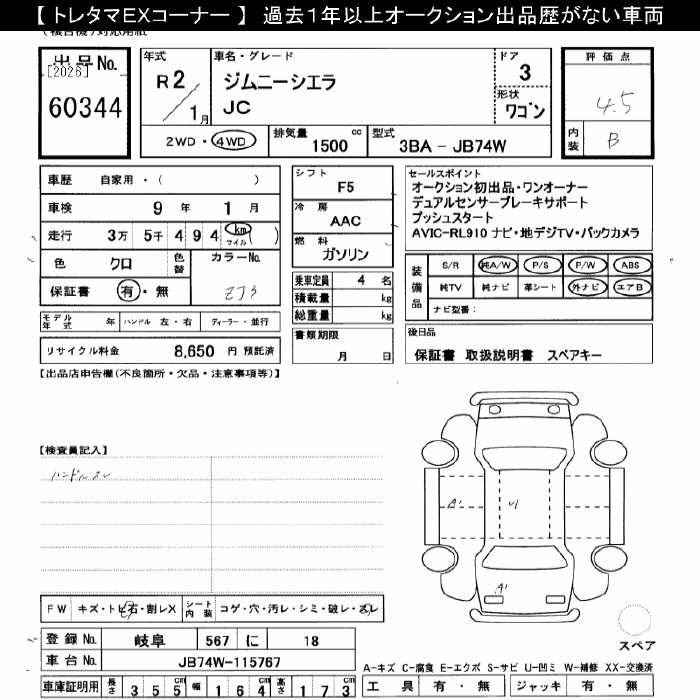 【 トレタマEXコーナー 】 過去1年以上オークション出品歴がない車両
出品No.
[2026]
60344
年式
R 2 / 1 月
車名・グレード
ジムニーシエラ
JC
ドア
3
形状
ワゴン
2WD・4WD
排気量 1500 cc
型式 3BA - JB74W
評価点
4.5
内装 B
車歴 自家用・( )
車検 9 年 1 月
走行 3万 5千 4 9 4 (km マイル)
色 クロ 色替
カラーNo.
ZJ3
保証書 有・無
モデル年式 年 ハンドル 左・右 ディーラー・並行
リサイクル料金 8,650 円 預託済
シフト
F5
冷房
AAC
燃料
ガソリン
乗車定員 4 名
積載量 kg
総重量 kg
書類期限
月 日
セールスポイント
オークション初出品・ワンオーナー
デュアルセンサーブレーキサポート
プッシュスタート
AVIC-RL910 ナビ・地デジTV・バックカメラ
装備品
S/R 純A/W P/S P/W ABS
純TV 純ナビ 革シート 外ナビ エアB
ナビ型番:
後日品
保証書 取扱説明書 スペアキー
【出品店申告欄(不良箇所・欠品・注意事項等)】
【検査員記入】
ハンドルスレ
A1
U1
A1
FW キズ・トビ石・割レX シート内装 コゲ・穴・汚レ・シミ・破レ・スレ
登録 No. 岐阜 567 に 18
車台 No. JB74W-115767
車庫証明用 長さ 3 5 5 cm 幅 1 6 4 cm 高さ 1 7 3 cm
スペア
A-キズ C-腐食 E-エクボ S-サビ U-凹ミ W-補修 XX-交換済
工具 有・無 ジャッキ 有・無